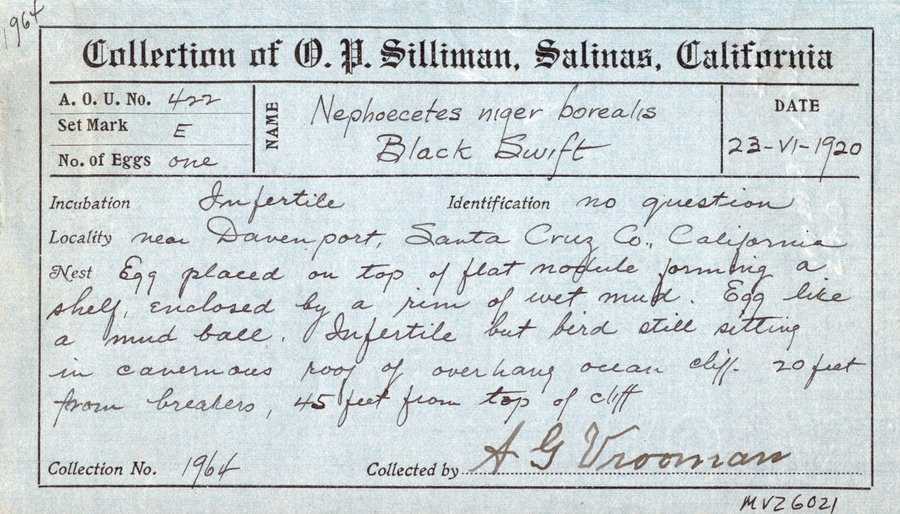 1964
Collection of O. P. Silliman, Salinas, California
A. O. U. No. 422
Set Mark E
No. of Eggs one
NAME
Nephoecetes niger borealis
Black Swift
DATE
23-VI-1920
Incubation Infertile Identification no question
Locality near Davenport, Santa Cruz Co., California
Nest Egg placed on top of flat nodule forming a
shelf, enclosed by a rim of wet mud. Egg like
a mud ball. Infertile but bird still sitting
in cavernous roof of overhang ocean cliff. 20 feet
from breakers, 45 feet from top of cliff
Collection No. 1964 Collected by A G Vrooman
MVZ6021